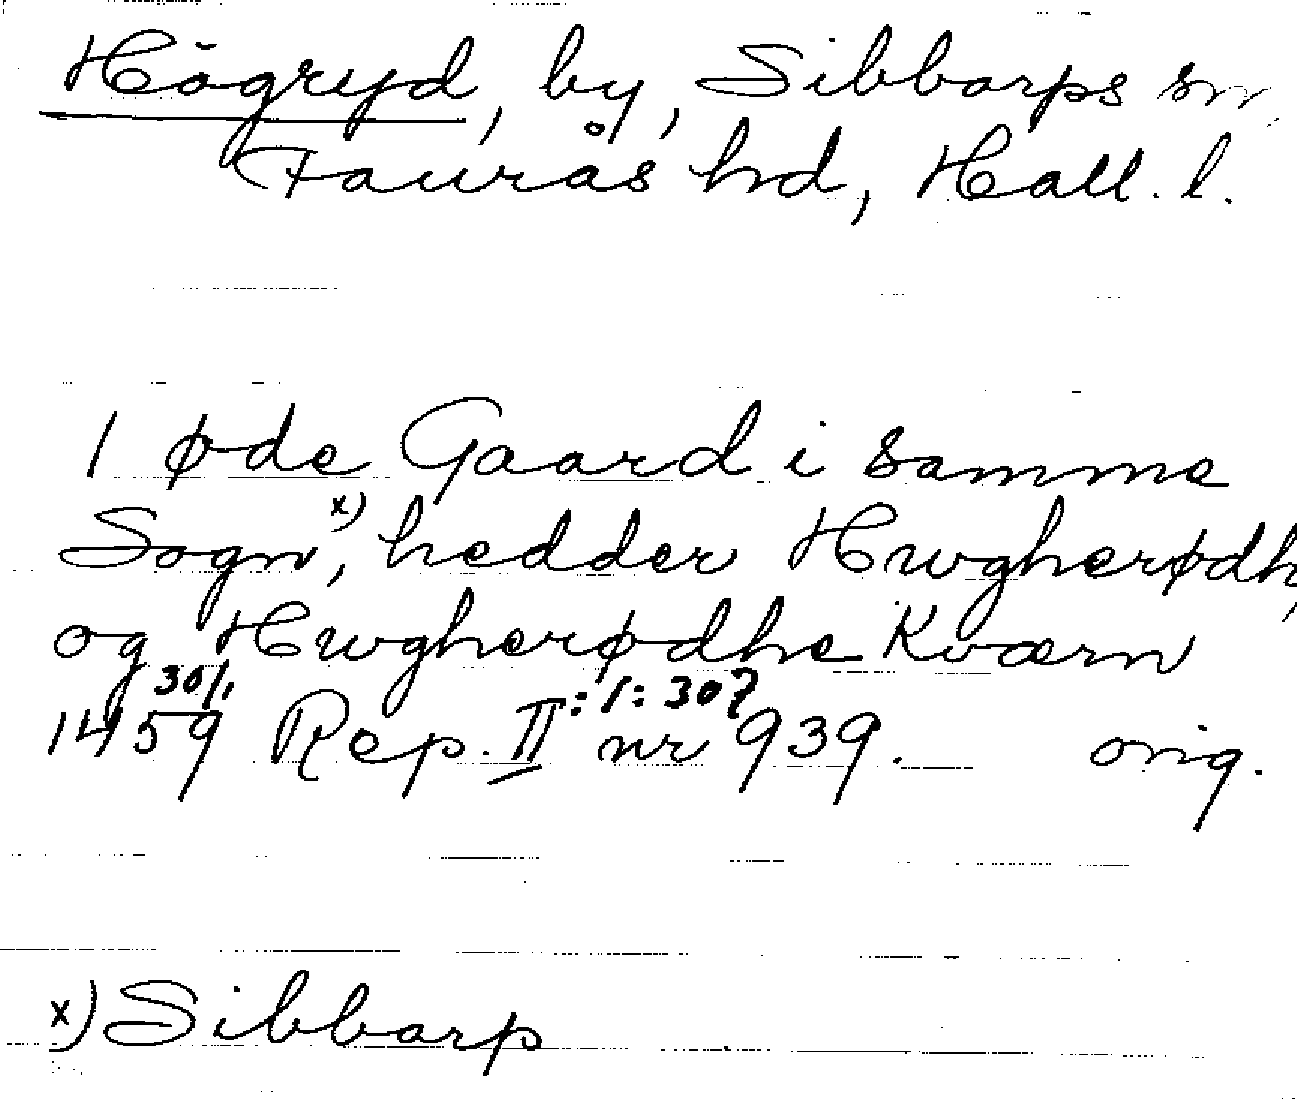 Högryd, by, Sibbarps sn,
Faurås hd, Hall. l.
1 øde Gaard i samme
Sogn, x) hedder Hwgherødh,
og Hwgherødhe Kværn
30/1
1459 Rep. II :1: 307 nr 939. orig.
x) Sibbarp